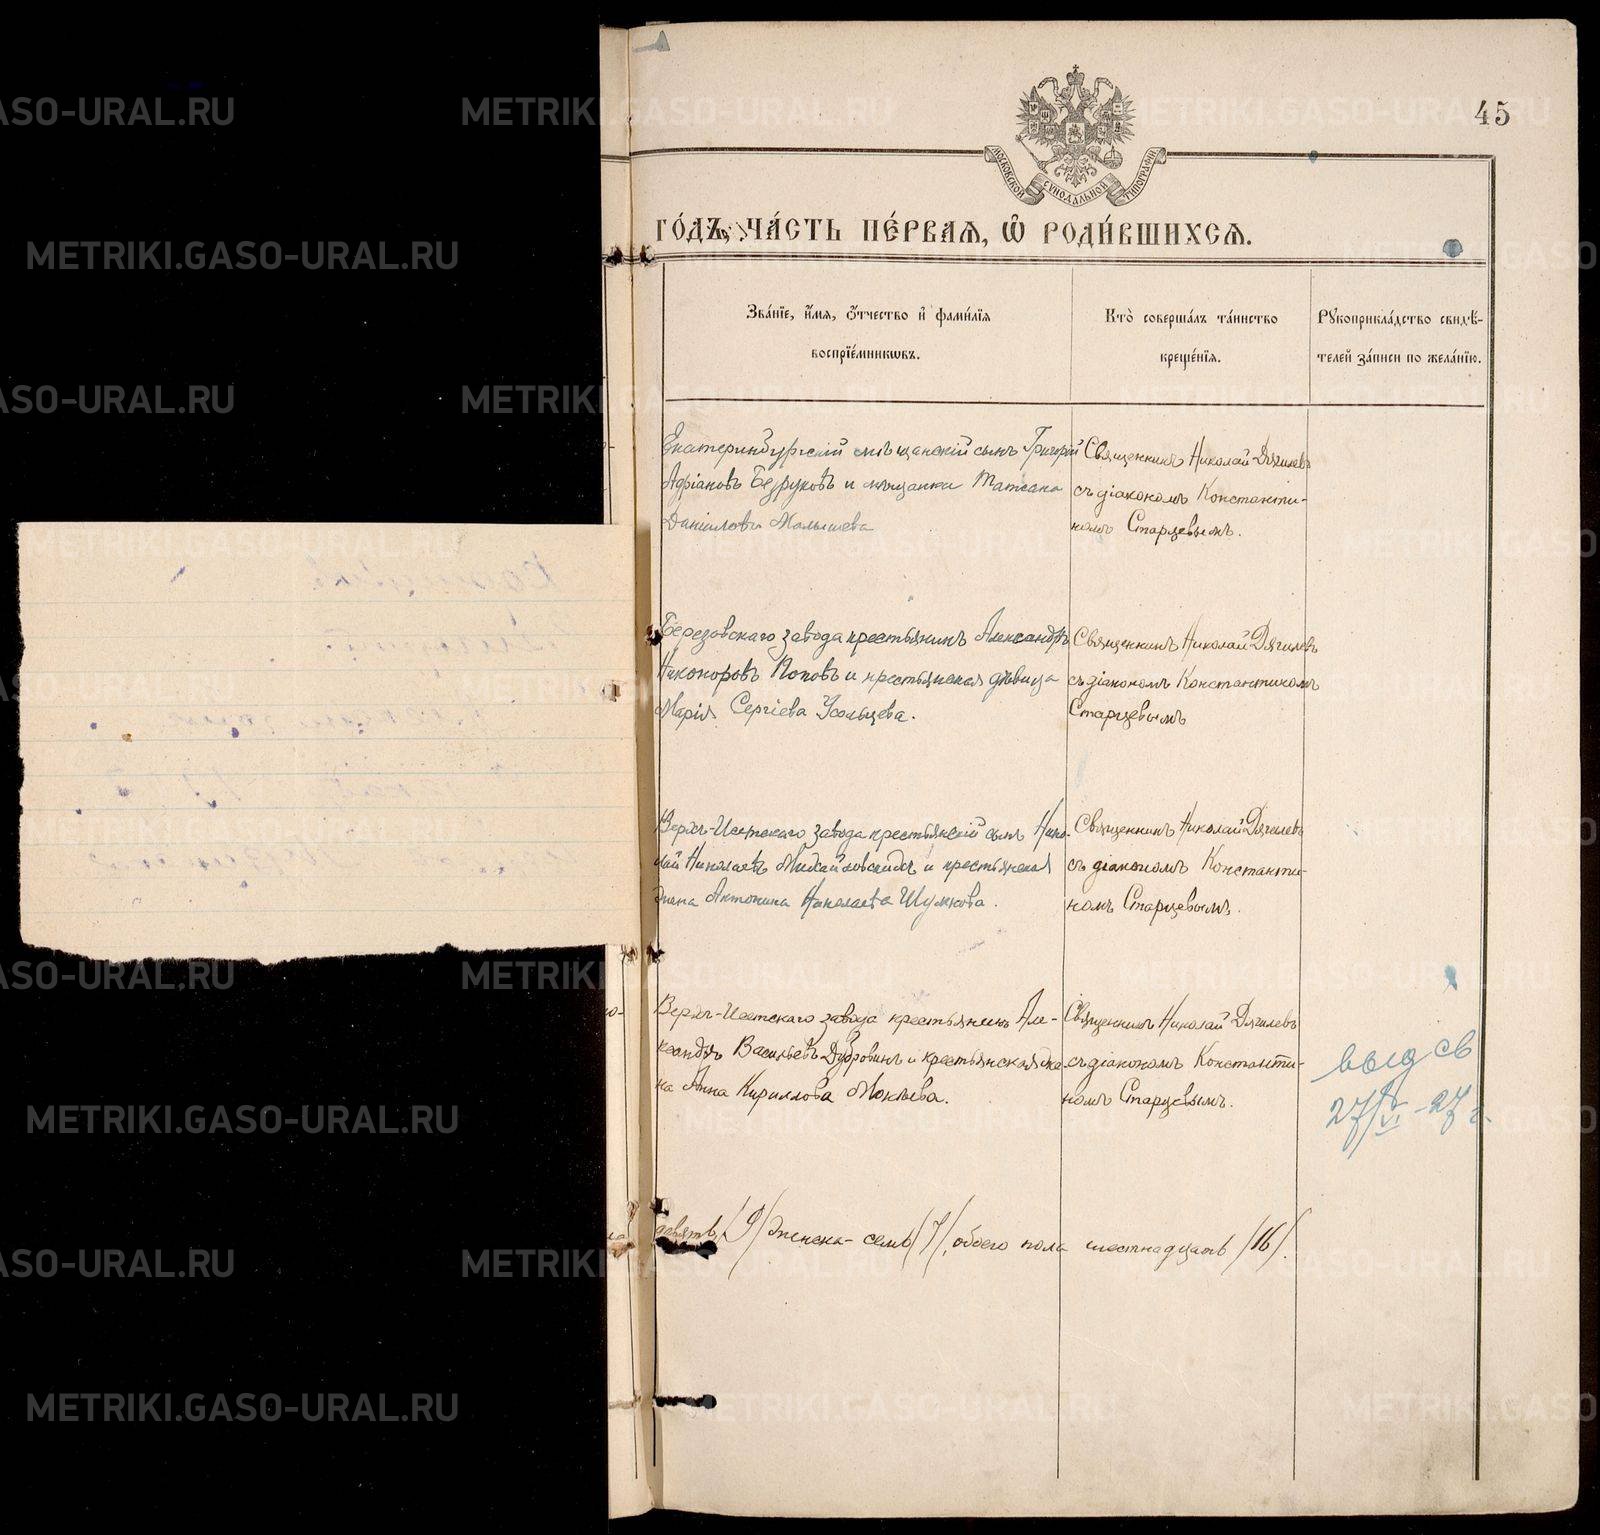 45
МОСКОВСКОЙ СѴНОДАЛЬНОЙ ТИПОГРАФІИ
ГО́ДЪ, ЧА́СТЬ ПЕ́РВАЯ, Ѽ РОДИ́ВШИХСЯ.
Зва́нїе, и҆́мя, ѻ҆́тчество и҆ фами́лїя
воспрїе́мникѡвъ.
Кто̀ соверша́лъ та́инство
креще́нїя.
Рꙋкоприкла́дство свидѣ́-
телей за́писи по жела́нїю.
Екатеринбургскій мѣщанскій сынъ Григорій
Адріановъ Безруковъ и мѣщанка Татіана
Даніилова Малышева
Священникъ Николай Дягилевъ
съ діакономъ Константи-
номъ Старцевымъ.
Березовскаго завода крестьянинъ Александръ
Никоноровъ Поповъ и крестьянская дѣвица
Марія Сергіева Усольцева.
Священникъ Николай Дягилевъ
съ діакономъ Константиномъ
Старцевымъ
Верхъ-Исетскаго завода крестьянскій сынъ Нико-
лай Николаевъ и крестьянская
жена Антонина Николаева Шумкова.
Священникъ Николай Дягилевъ
съ діакономъ Константи-
номъ Старцевымъ.
Верхъ-Исетскаго завода крестьянинъ Але-
ксандръ Васильевъ Дубровинъ и крестьянская же-
на Анна Кириллова Мокѣева.
Священникъ Николай Дягилевъ
съ діакономъ Константи-
номъ Старцевымъ.
выд св
27/VI -27 г.
девять /9/ женска - семь /7/, обоего пола шестнадцать /16/.
METRIKI.GASO-URAL.RU